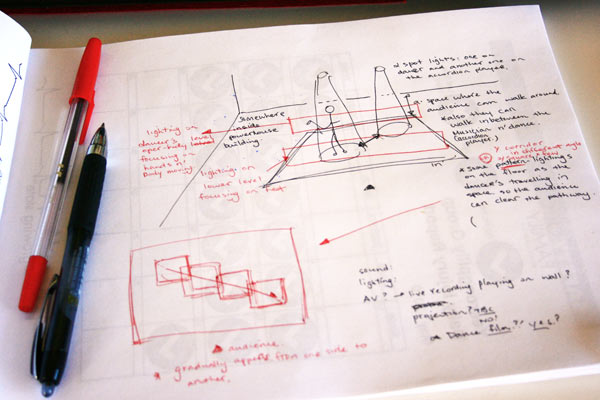 * Spot lights: one on
dancer and another one on
the accordion player.
* space where the
audience can walk around.
* also they can
walk in between the
Musician n' dance.
(accordion
player)
somewhere
inside
powerhouse
building
lighting on
dancer's level
focusing on
hands n'
body moving
lighting on
lower level
focusing on feet
* corridor
in different angle
* square row
* Some pattern lightings
on the floor as the
dancer's travelling in
space. so the audience
can clear the pathway.
(
sound:
lighting:
AV? → live recording playing on wall?
projection? TBC
NO!
* Dance film?? yes?
▲ audience.
* gradually appears from one side to
another.